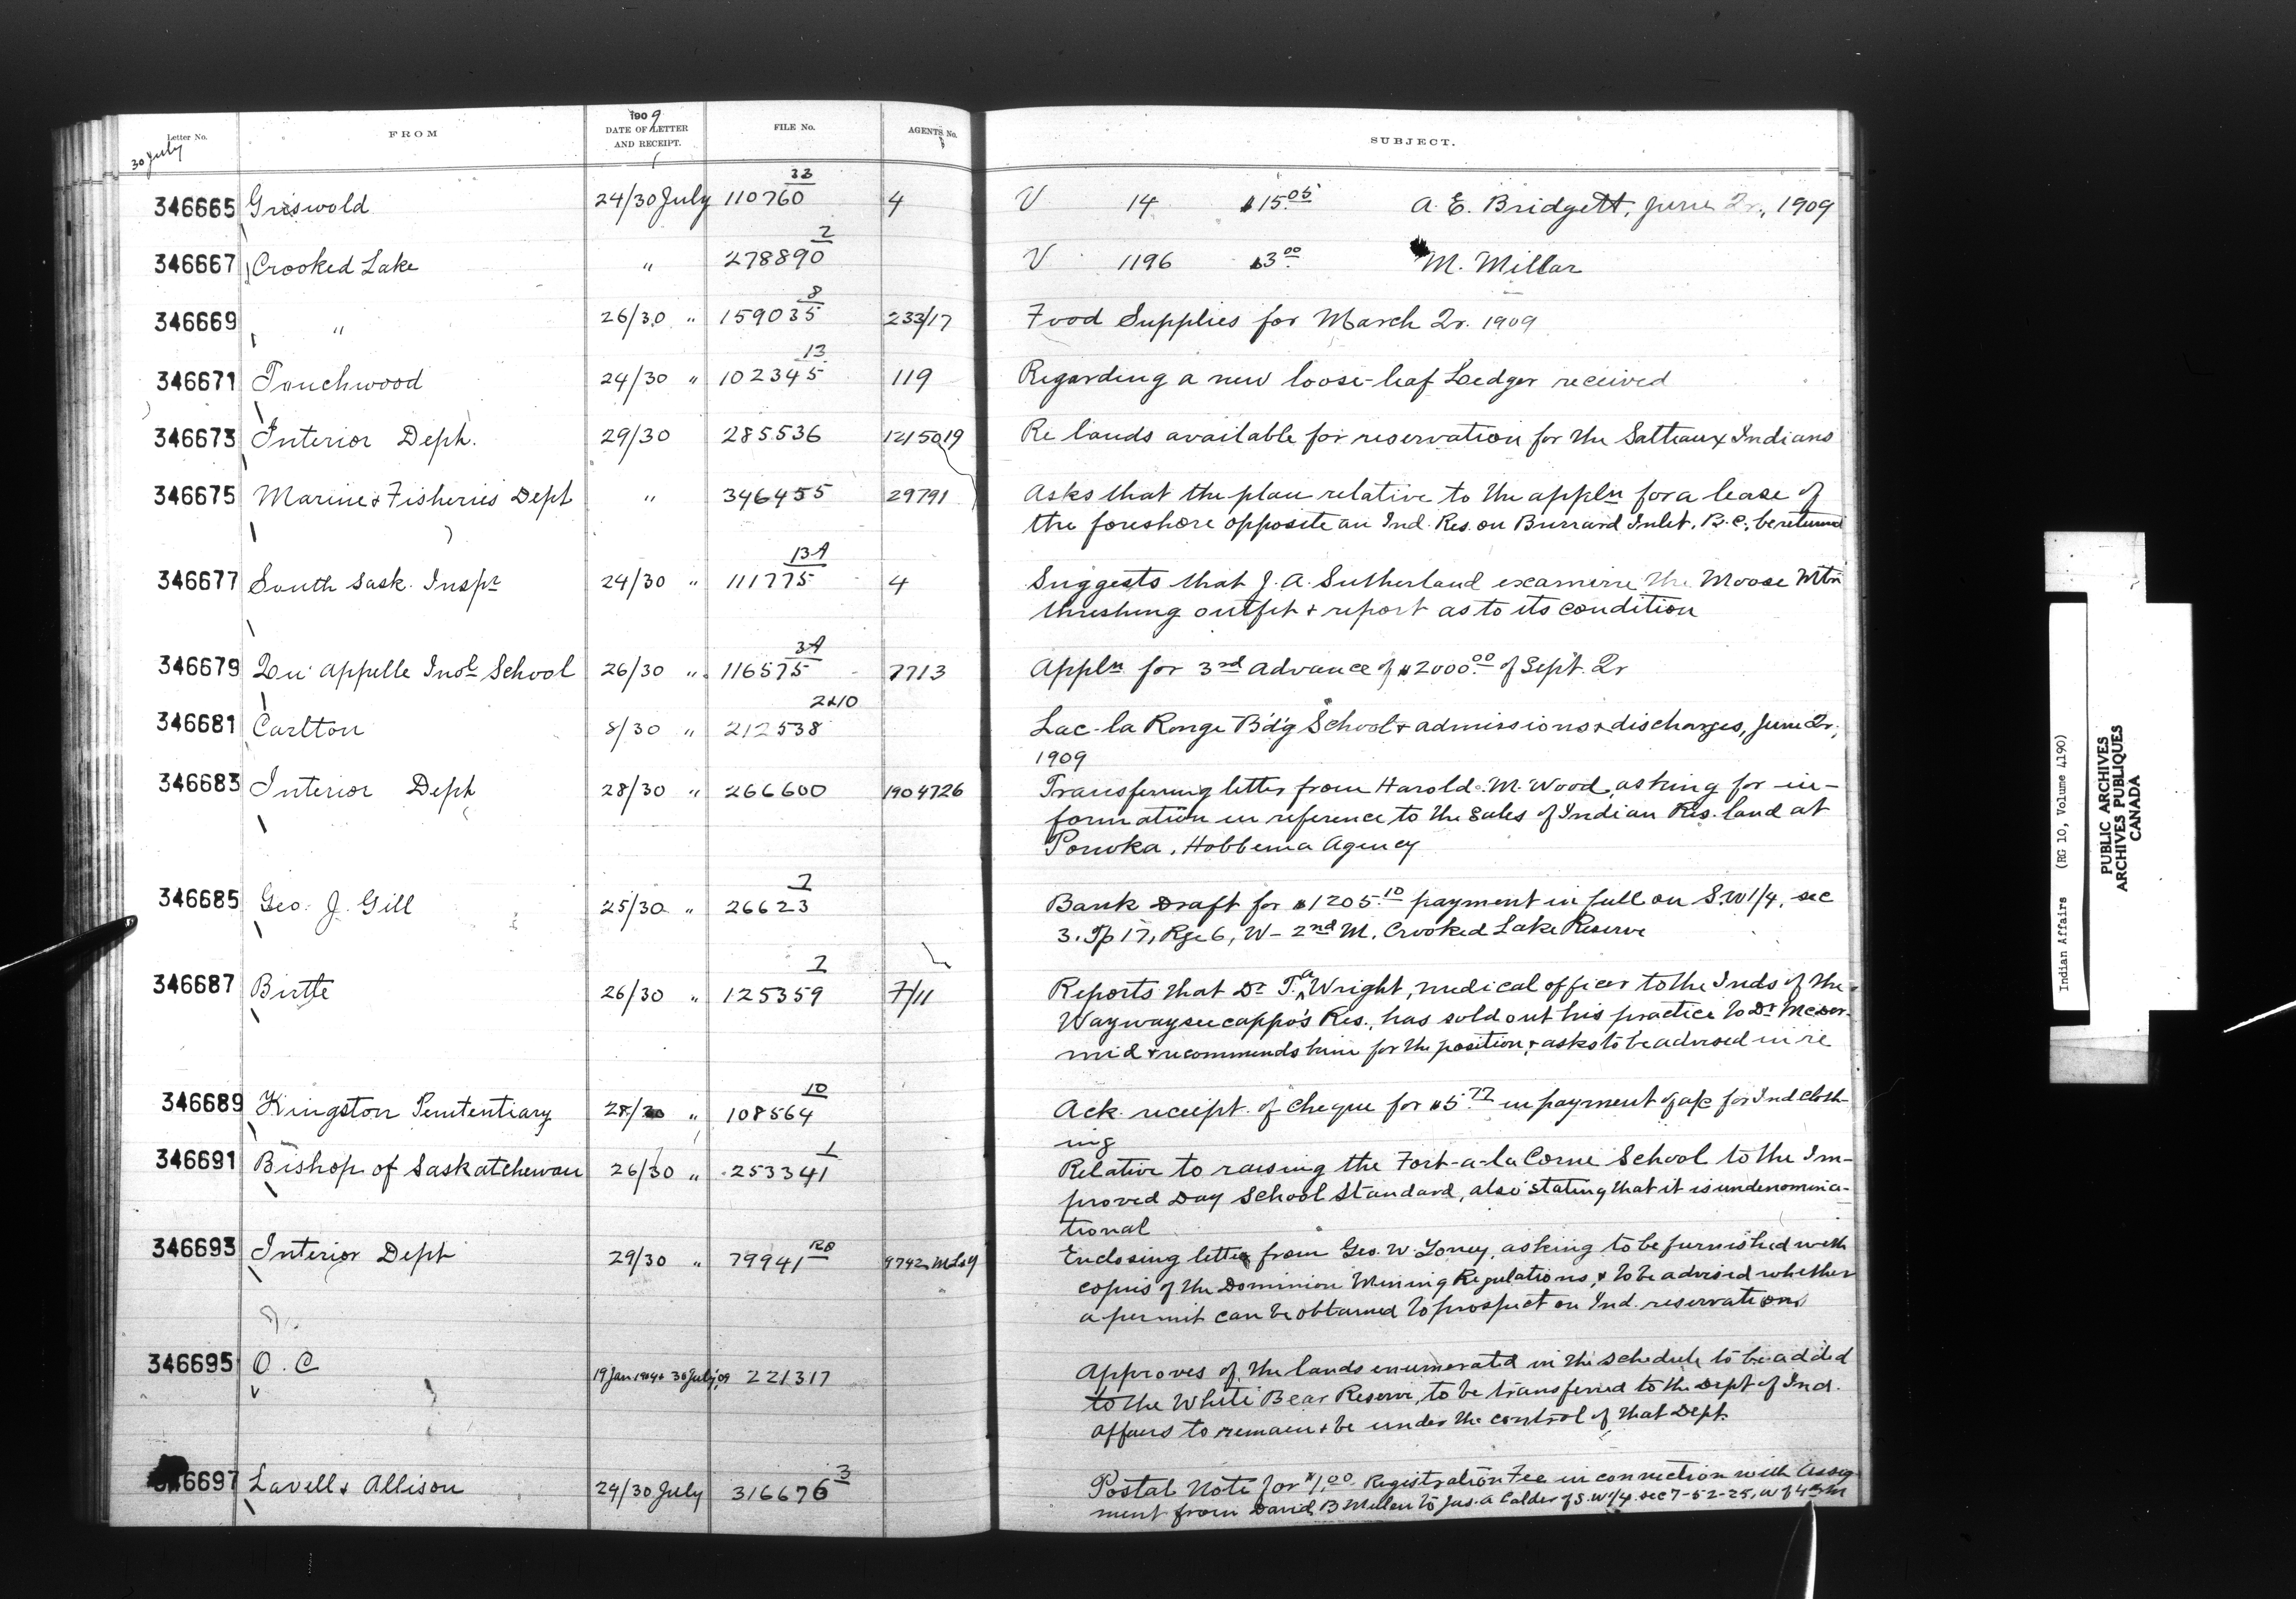 Letter No. FROM 1909 DATE OF LETTER AND RECEIPT. FILE No. AGENTS No. SUBJECT.
30 July
346665 Griswold 24/30 July 110760 33 4 V 14 $15.05 A. E. Bridgett, June Qr., 1909
346667 Crooked Lake " 278890 2 V 1196 $3.00 M. Millar
346669 " 26/30 " 159035 8 233/17 Food Supplies for March Qr. 1909
346671 Touchwood 24/30 " 102345 13 119 Regarding a new loose-leaf Ledger received
346673 Interior Dept. 29/30 285536 1215019 Re lands available for reservation for the Salteaux Indians
346675 Marine & Fisheries Dept " 346455 29791 Asks that the plan relative to the appln for a lease of
the foreshore opposite an Ind. Res. on Burrard Inlet, B.C., be returned
346677 South Sask. Inspr 24/30 " 111775 13A 4 Suggests that J. A. Sutherland examine the Moose Mtn
threshing outfit & report as to its condition
346679 Qu'Appelle Indl School 26/30 " 116575 3A 7713 Appln for 3rd advance of $2000.00 of Sept. Qr
346681 Carlton 8/30 " 212538 2&10 Lac-la Ronge B'd'g School & admissions & discharges, June Qr.,
1909
346683 Interior Dept 28/30 " 266600 1904726 Transferring letter from Harold M. Wood, asking for in-
formation in reference to the Sales of Indian Res. land at
Ponoka, Hobbema Agency
346685 Geo. J. Gill 25/30 " 26623 7 Bank Draft for $1205.10 payment in full on S.W 1/4, sec
3, Tp 17, Rge 6, W- 2nd M, Crooked Lake Reserve
346687 Birtle 26/30 " 125359 7/11 Reports that Dr T. A. Wright, medical officer to the Inds of the
Waywayseecappo's Res., has sold out his practice to Dr McDer-
mid & recommends him for the position & asks to be advised in re
346689 Kingston Penitentiary 28/30 " 108564 10 Ack. receipt of Cheque for $5.77 in payment of a/c for Ind Cloth-
ing
346691 Bishop of Saskatchewan 26/30 " 253341 1 Relative to raising the Fort-a-la Corne School to the Im-
proved Day School Standard, also stating that it is undenomina-
tional
346693 Interior Dept 29/30 " 79941 Enclosing letter from Geo. W. Toney, asking to be furnished with
copies of the Dominion Mining Regulations, & to be advised whether
a permit can be obtained to prospect on Ind. reservations
346695 O.C 19 Jan 1904 & 30 July, 09 221317 Approves of the lands enumerated in the schedule to be added
to the White Bear Reserve, to be transferred to the Dept of Ind.
Affairs to remain & be under the control of that Dept.
6697 Lavell & Allison 24/30 July 316676 3 Postal Note for $1.00 Registration Fee in connection with Assign
ment from David B Mullen to Jas. A Calder of S.W 1/4 sec 7-52-25, W of 4th M
Indian Affairs (RG 10, Volume 4190)
PUBLIC ARCHIVES
ARCHIVES PUBLIQUES
CANADA